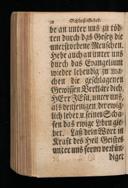 Schluß-Gebet.
he an unter uns zu töd-
ten durch das Gesetz die
unerstorbene Menschen.
Hebe auch an unter uns
durch das Evangelium
wieder lebendig zu ma-
chen die geschlagenen
Gewissen. Verkläre dich,
HErr JEsu, unter uns,
als derjenigen der ewig-
lich lebet, und seinen Scha-
fen das ewige Leben gie-
bet. Laß dein Wort in
Kraft des Heil. Geistes
unter uns ferner verkün-
diget